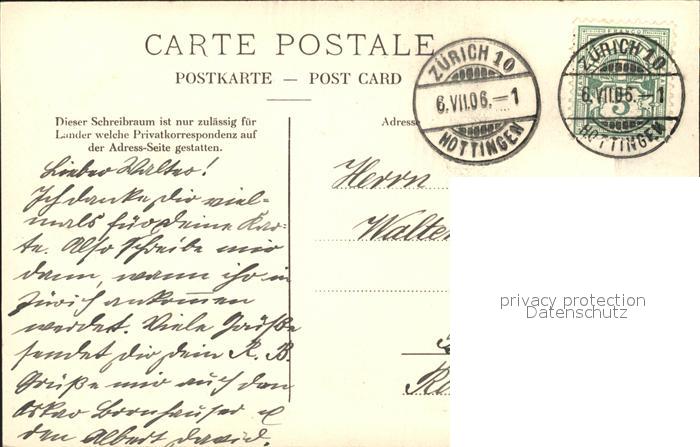 CARTE POSTALE
POSTKARTE — POST CARD
Dieser Schreibraum ist nur zulässig für
Länder welche Privatkorrespondenz auf
der Adress-Seite gestatten.
Adresse
ZÜRICH 10
6.VII.06.—1
HOTTINGEN
FRANCO
ZÜRICH 10
6.VII.06.—1
HOTTINGEN
Lieber Walter!
Ich danke dir viel-
mals für deine Kar-
te. Also schreibe mir
dann, wann ihr in
Zürich ankommen
werdet. Viele Grüße
sendet dir dein R. B.
Grüße mir auch den
Oskar Bornhauser u
den Albert David.
Herrn
Walter
privacy protection
Datenschutz